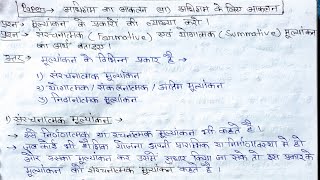 विषय → अधिगम का आकलन एवं अधिगम के लिए आकलन
प्रश्न → मूल्यांकन के प्रकारों की व्याख्या करो।
प्रश्न → संरचनात्मक (Formative) एवं योगात्मक (Summative) मूल्यांकन का अर्थ बताइए।
उत्तर → मूल्यांकन के विभिन्न प्रकार है →
1) संरचनात्मक मूल्यांकन
2) योगात्मक / संकलनात्मक / अंतिम मूल्यांकन
3) निदानात्मक मूल्यांकन
1) संरचनात्मक मूल्यांकन →
- इसे निर्माणात्मक या रचनात्मक मूल्यांकन भी कहते है।
- जब कोई भी शैक्षिक योजना अपनी प्रारम्भिक या निर्माणावस्था मे हो
और उसका मूल्यांकन कर उसमे सुधार किया जा सके तो इस प्रकार के
मूल्यांकन को संरचनात्मक मूल्यांकन कहते है।